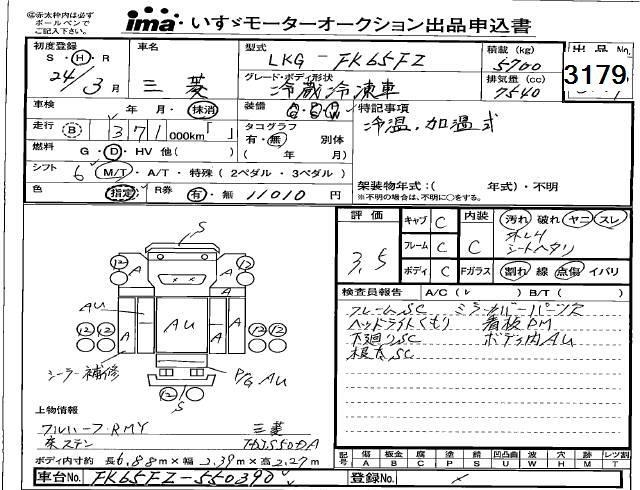 ◎赤太枠内は必ずボールペンでご記入下さい。
ima いすゞモーターオークション出品申込書
初度登録 S・H・R 24/3月
車名 三菱
型式 LKG-FK65FZ
積載(kg) 5700
出品No. 3179
グレード・ボディ形状 冷蔵冷凍車
排気量(cc) 7540
車検 年 月・抹消
装備
特記事項
冷温・加温式
走行 B 1371 000km「 」
タコグラフ 有・無 別体 ( 年 月)
燃料 G・D・HV 他( )
シフト 6 M/T・A/T・特殊(2ペダル・3ペダル)
架装物年式:( 年式)・不明
※不明の場合は、不明に○をする。
色 指定
R券 有・無 11010 円
評価 3.5
キャブ C
内装 C
汚れ 破れ ヤニ スレ
シートヘタリ
フレーム C
ボディ C
Fガラス 割れ 線 点傷 イバリ
検査員報告 A/C( ) B/T( )
フレームSC ミラーカバーパーツ欠
ヘッドライトくもり 看板DM
下廻りSC ボディ内AU
根太SC
S
12 12
A A
A A A A
AU AU
12 12 12 12
シーラー補修
P/G AU
12 S
上物情報
フルハーフ・RMY 三菱
床ステン TDJS50DA
ボディ内寸約 長6.88m×幅2.39m×高2.27m
記号 傷A 板金B 腐C 塗P 錆S 凹凸曲U 波W 穴H 跡M レツ割T
車台No. FK65FZ-550390
登録No.